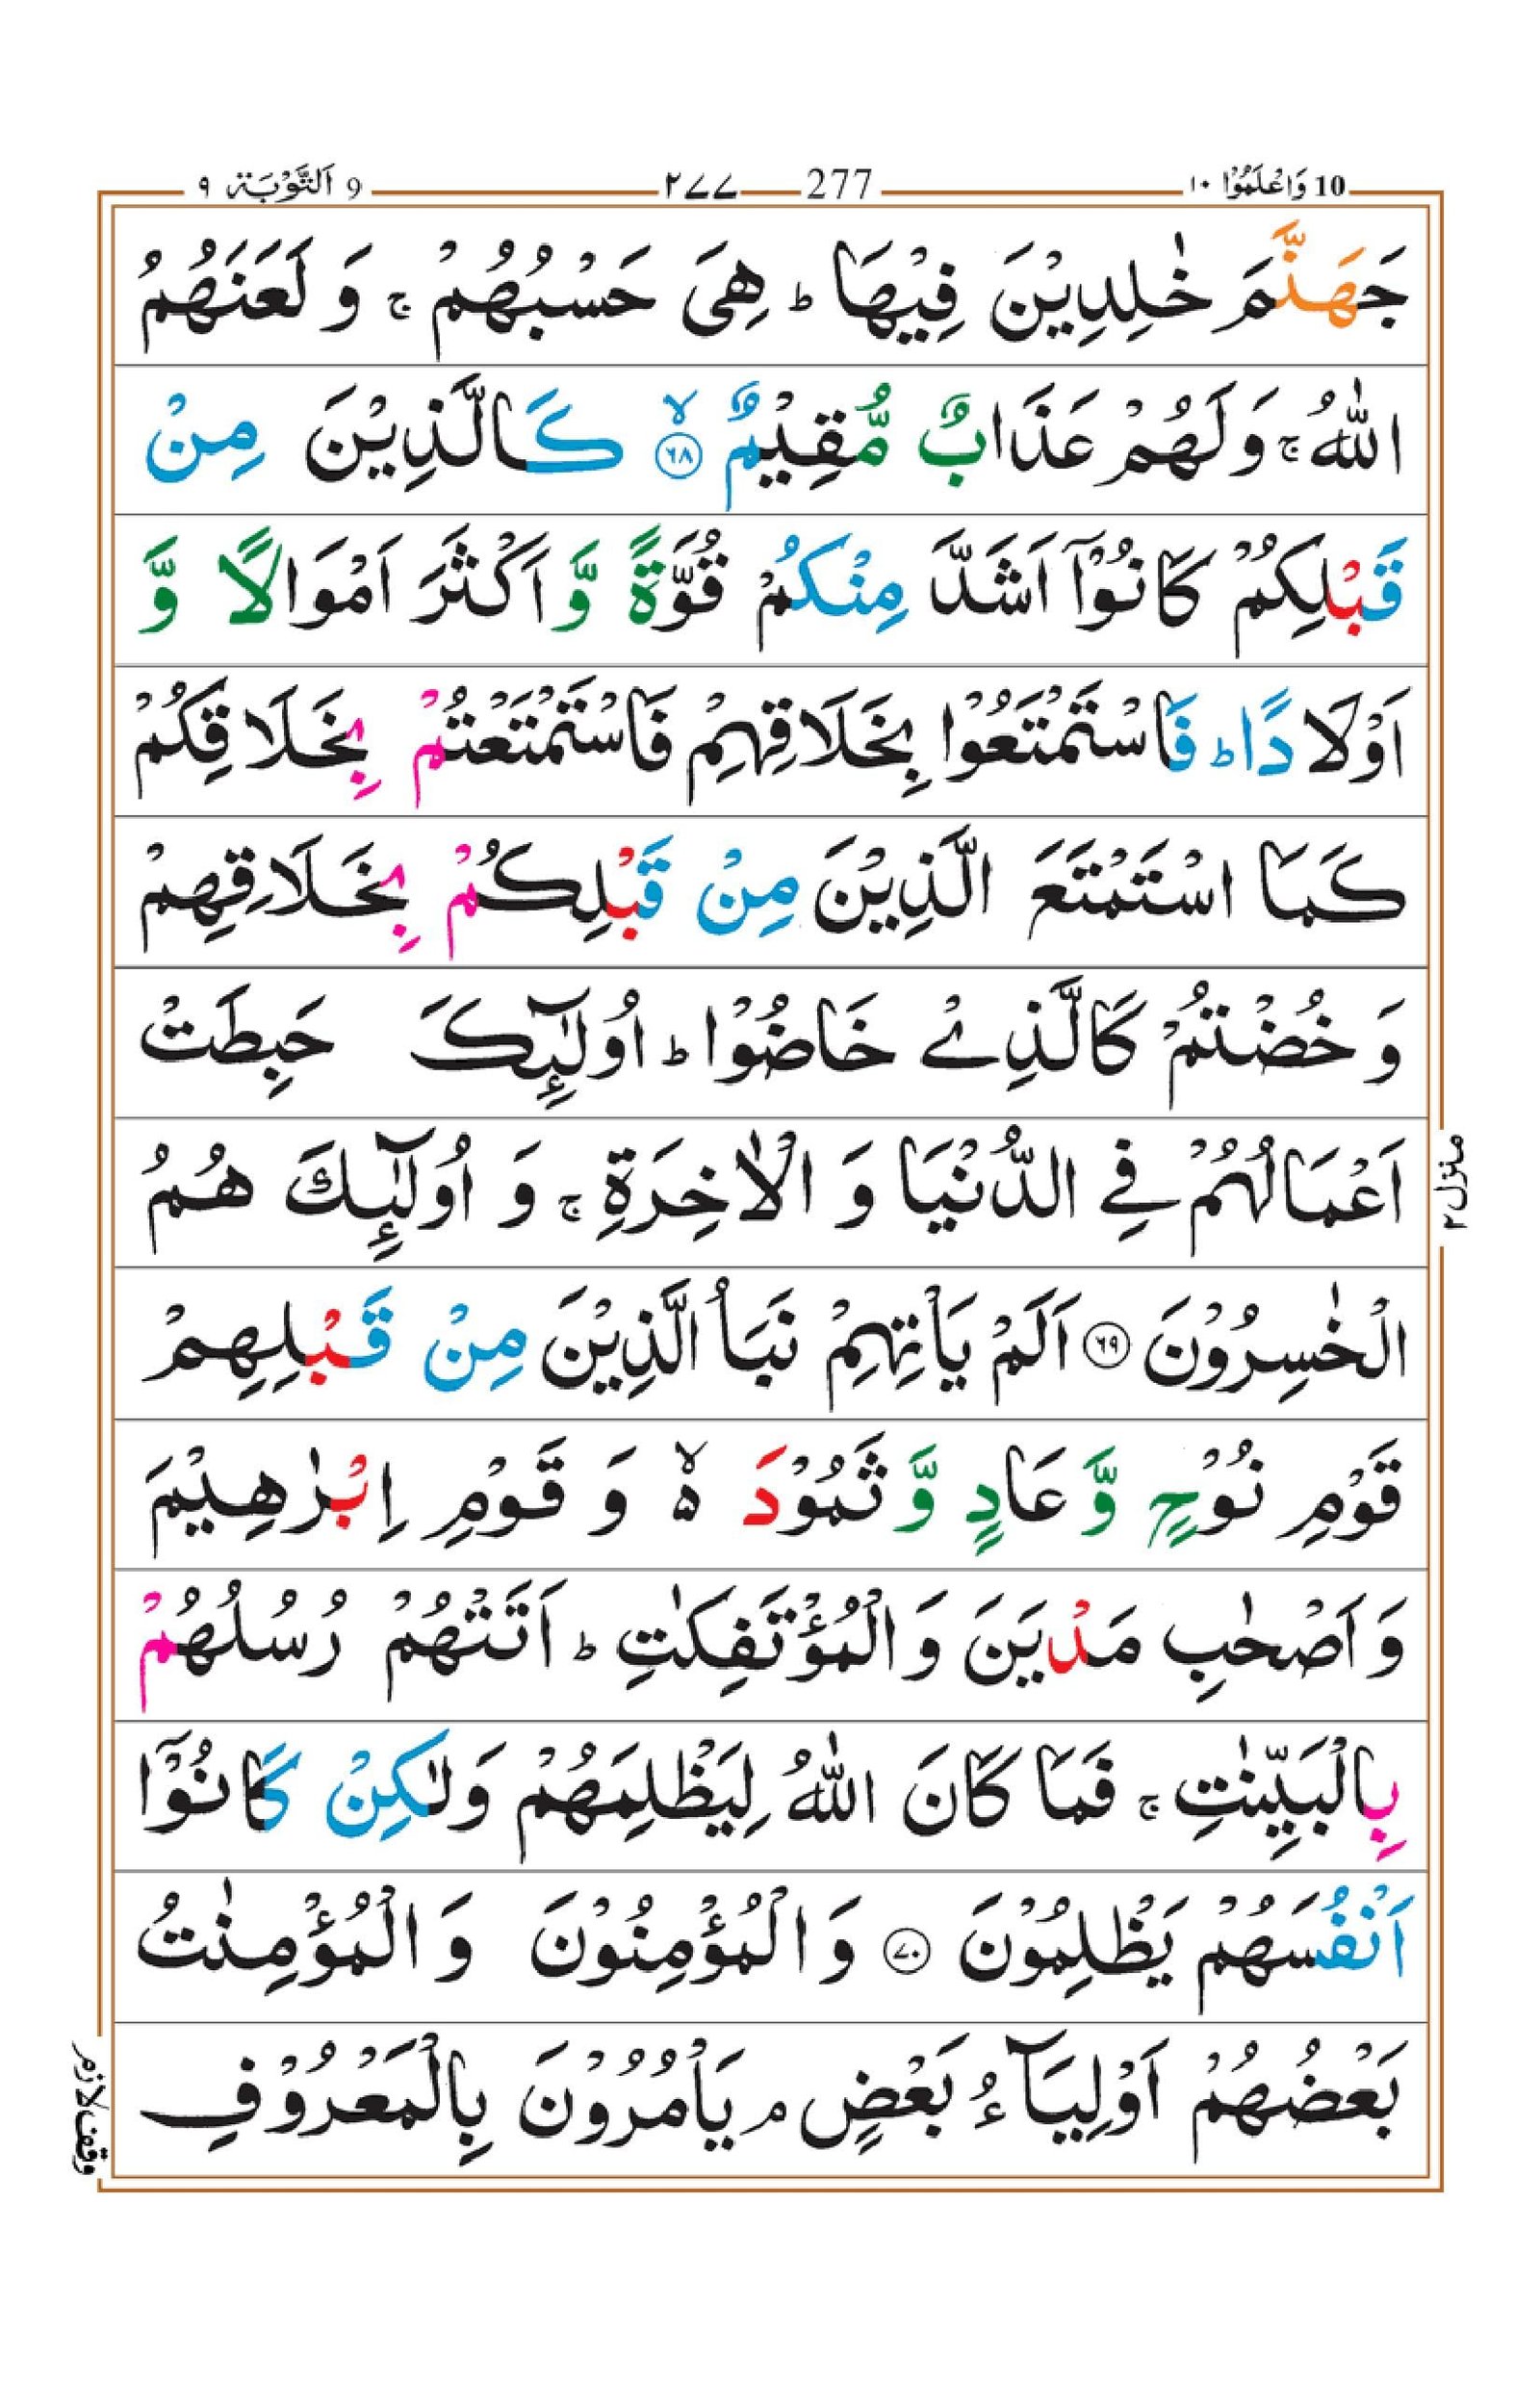 10 وَاعْلَمُوْٓا ١٠ 277 ٢٧٧ 9 اَلتَّوْبَة ٩
جَهَنَّمَ خٰلِدِيْنَ فِيْهَا ؕ هِيَ حَسْبُهُمْ ۚ وَ لَعَنَهُمُ
اللّٰهُ ۚ وَلَهُمْ عَذَابٌ مُّقِيْمٌ ۙ ﴿٦٨﴾ كَالَّذِيْنَ مِنْ
قَبْلِكُمْ كَانُوْۤا اَشَدَّ مِنْكُمْ قُوَّةً وَّ اَكْثَرَ اَمْوَالًا وَّ
اَوْلَادًا ؕ فَاسْتَمْتَعُوْا بِخَلَاقِهِمْ فَاسْتَمْتَعْتُمْ بِخَلَاقِكُمْ
كَمَا اسْتَمْتَعَ الَّذِيْنَ مِنْ قَبْلِكُمْ بِخَلَاقِهِمْ
وَ خُضْتُمْ كَالَّذِيْ خَاضُوْا ؕ اُولٰٓئِكَ حَبِطَتْ
اَعْمَالُهُمْ فِي الدُّنْيَا وَ الْاٰخِرَةِ ۚ وَ اُولٰٓئِكَ هُمُ
الْخٰسِرُوْنَ ﴿٦٩﴾ اَلَمْ يَاْتِهِمْ نَبَاُ الَّذِيْنَ مِنْ قَبْلِهِمْ
قَوْمِ نُوْحٍ وَّ عَادٍ وَّ ثَمُوْدَ ۙ۬ وَ قَوْمِ اِبْرٰهِيْمَ
وَ اَصْحٰبِ مَدْيَنَ وَ الْمُؤْتَفِكٰتِ ؕ اَتَتْهُمْ رُسُلُهُمْ
بِالْبَيِّنٰتِ ۚ فَمَا كَانَ اللّٰهُ لِيَظْلِمَهُمْ وَلٰكِنْ كَانُوْۤا
اَنْفُسَهُمْ يَظْلِمُوْنَ ﴿٧٠﴾ وَ الْمُؤْمِنُوْنَ وَ الْمُؤْمِنٰتُ
بَعْضُهُمْ اَوْلِيَآءُ بَعْضٍ ۘ يَاْمُرُوْنَ بِالْمَعْرُوْفِ
منزل ٢
وقف لازم